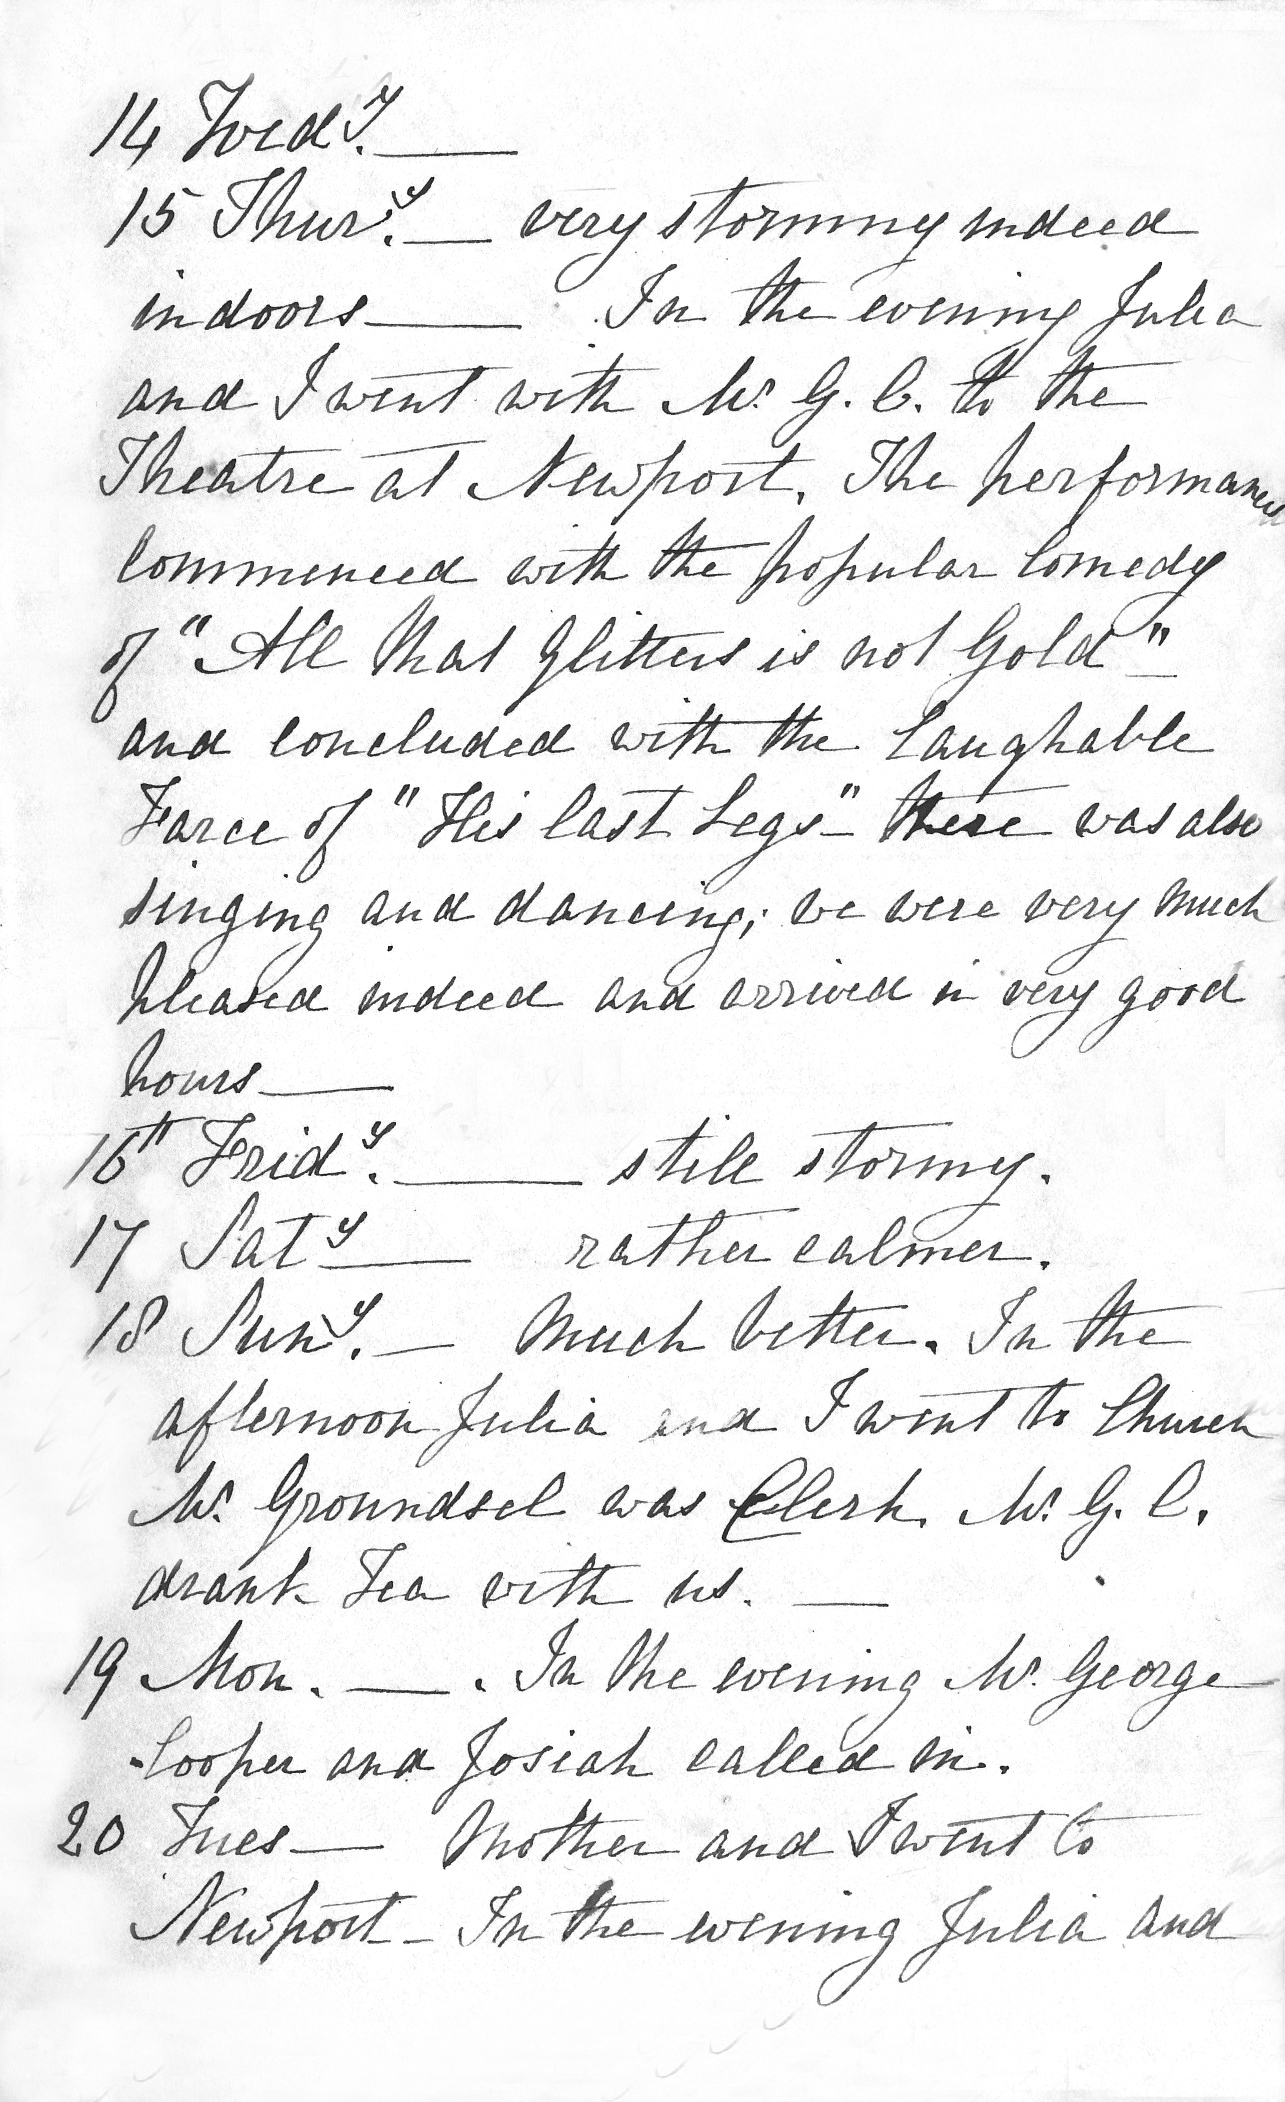 14 Wedy. —
15 Thury. — very stormy indeed
indoors — In the evening Julia
and I went with Mr. G. C. to the
Theatre at Newport. The performances
Commenced with the popular Comedy
of "All that Glitters is not Gold"
and concluded with the Laughable
Farce of "His last Legs" — there was also
singing and dancing; we were very much
pleased indeed and arrived in very good
hours —
16th Fridy. — still stormy.
17 Saty — rather calmer.
18 Suny. — Much better. In the
afternoon Julia and I went to Church
Mr. Groundsel was Clerk. Mr. G. C.
drank Tea with us. —
19 Mon. — . In the evening Mr. George
Cooper and Josiah called in.
20 Tues — Mother and I went to
Newport — In the evening Julia and